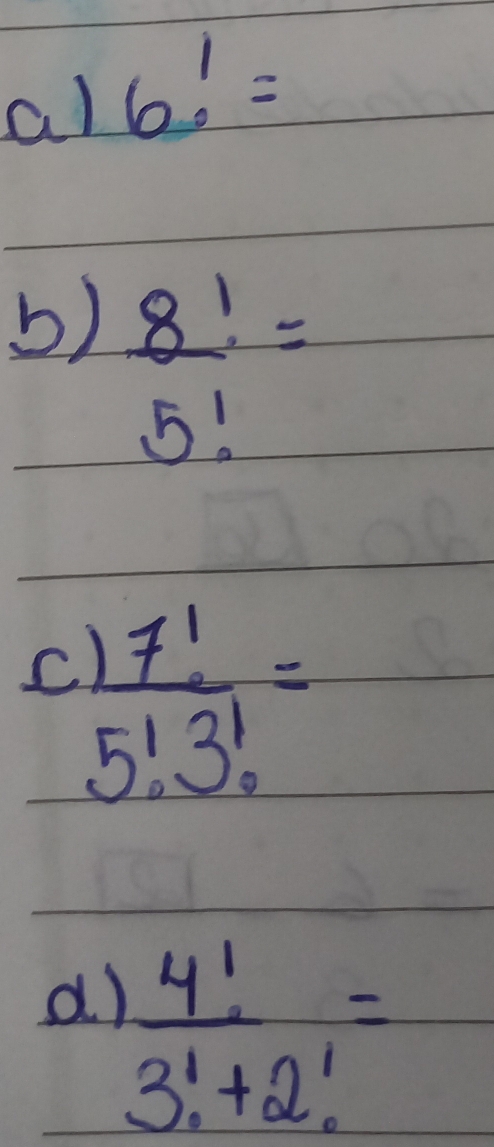 a) 6! =
b) 8! =
5!
c) 7! =
5! 3!
d) 4! =
3! + 2!